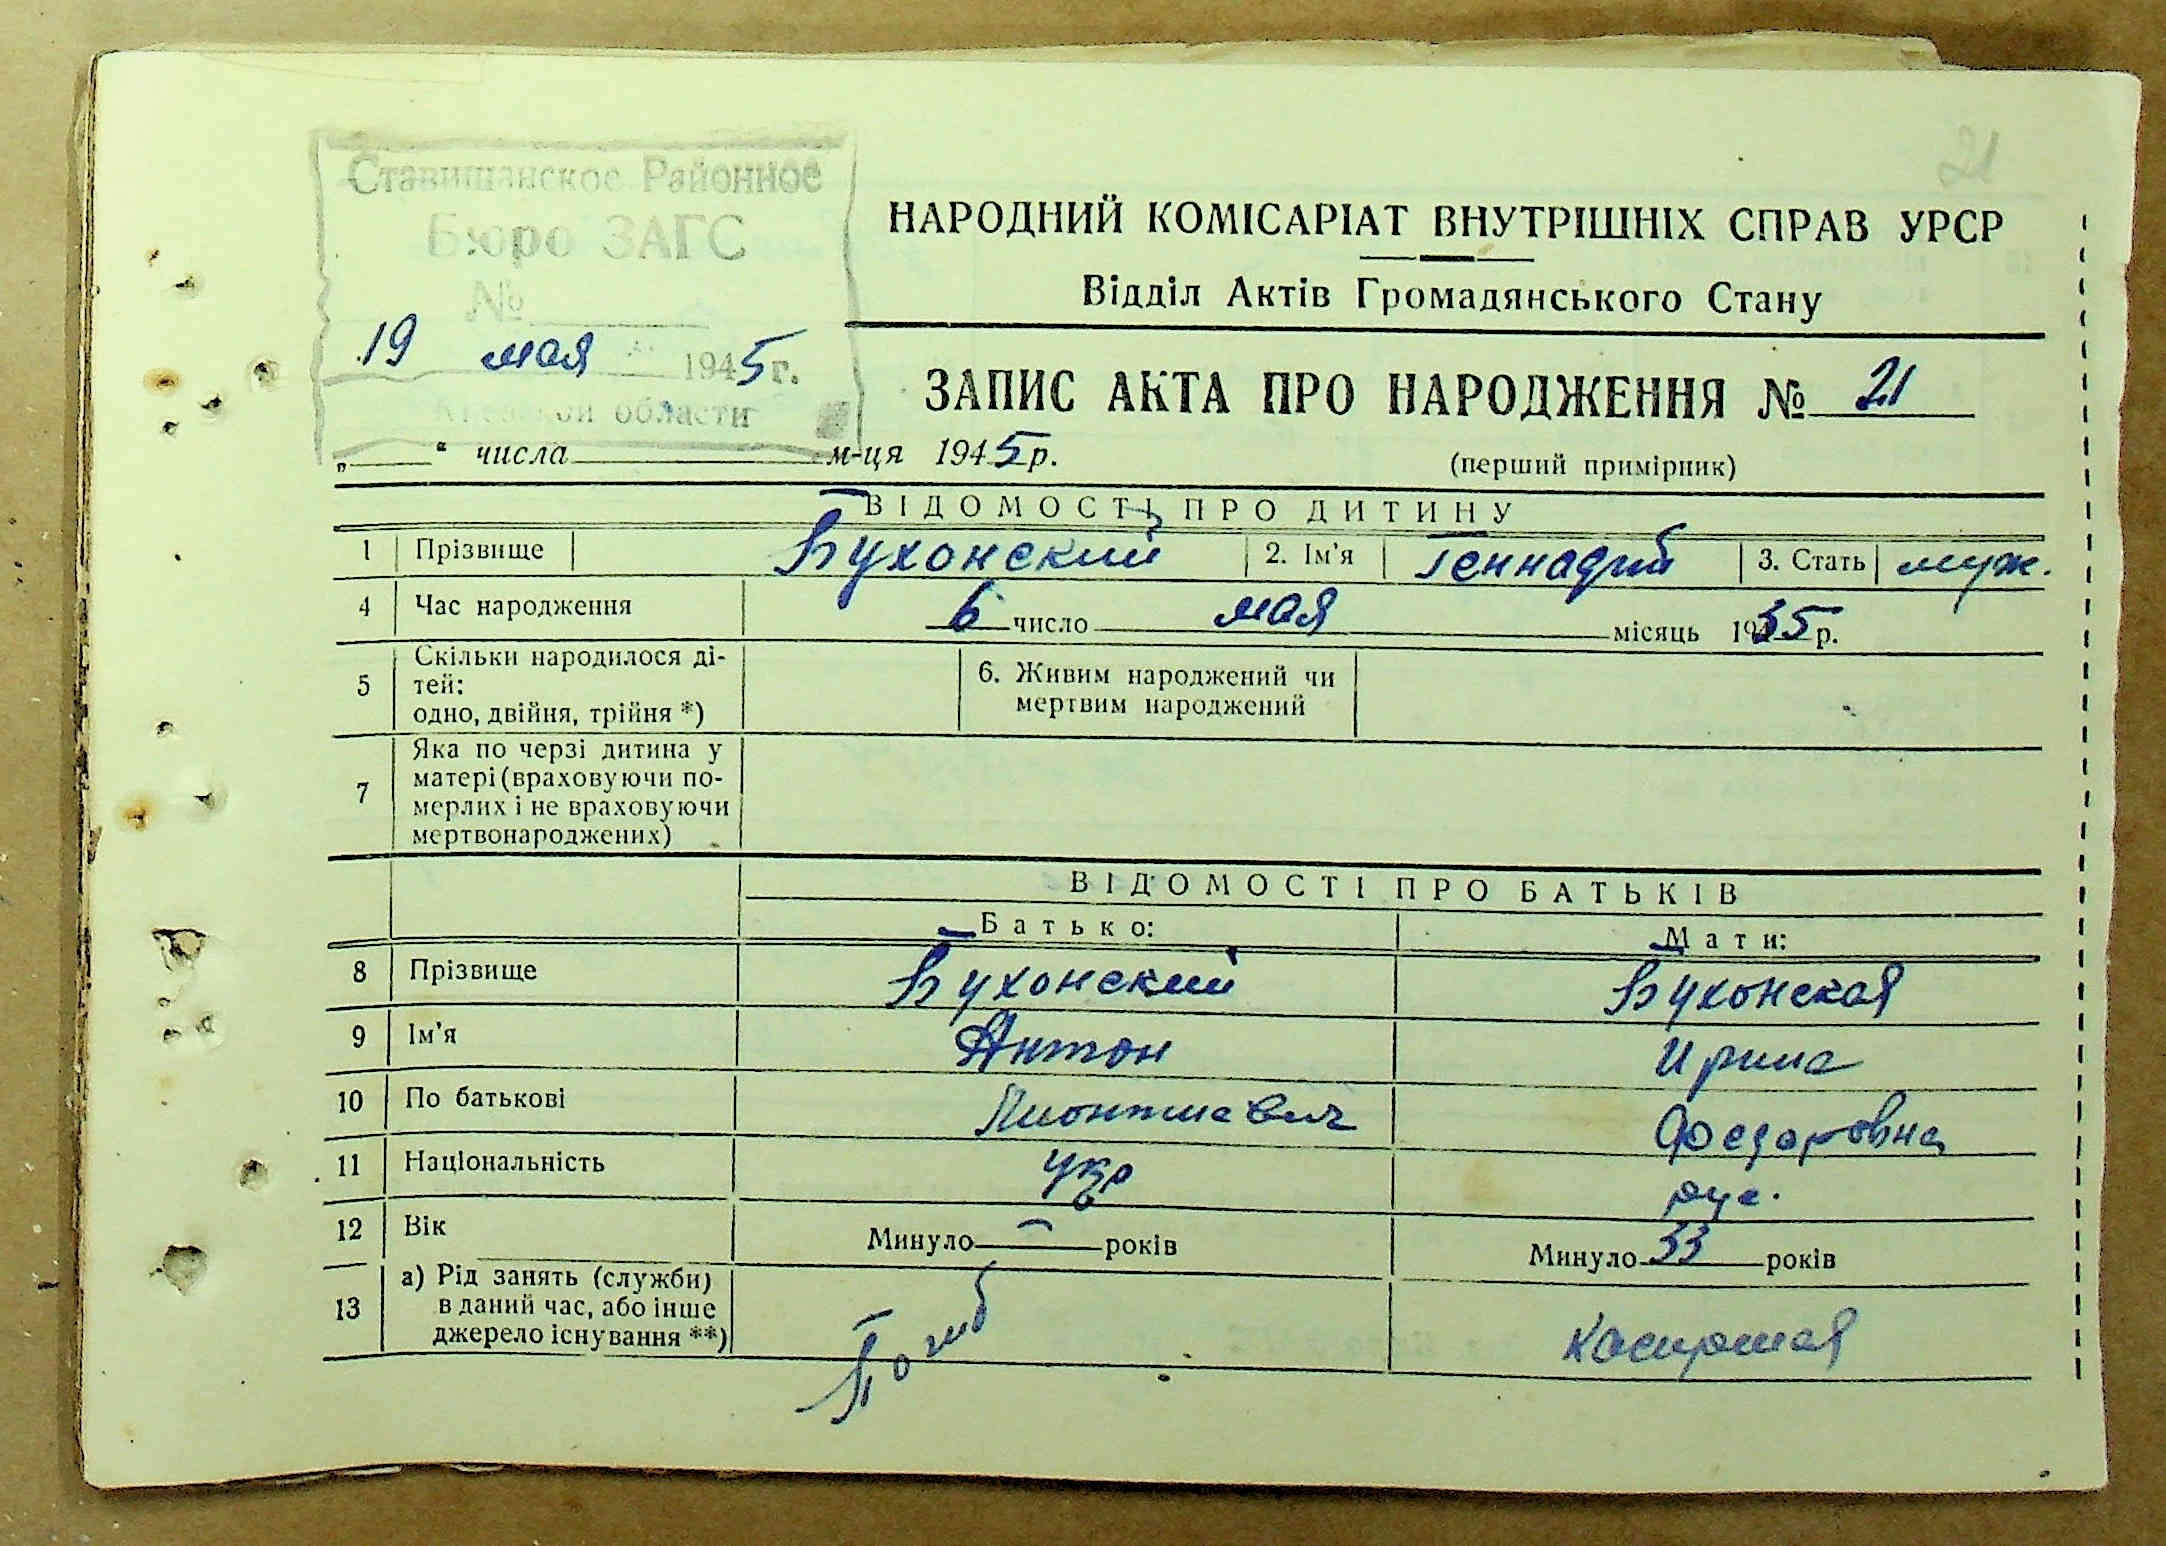 21
Ставищанское Районное
Бюро ЗАГС
№
19 мая 1945 г.
Киевской области
НАРОДНИЙ КОМІСАРІАТ ВНУТРІШНІХ СПРАВ УРСР
Відділ Актів Громадянського Стану
ЗАПИС АКТА ПРО НАРОДЖЕННЯ № 21
„ “ числа м-ця 1945 р.
(перший примірник)
ВІДОМОСТІ ПРО ДИТИНУ
1 Прізвище Бухонский 2. Ім’я Геннадий 3. Стать муж.
4 Час народження 6 число мая місяць 1935 р.
5 Скільки народилося ді-
тей:
одно, двійня, трійня *)
6. Живим народжений чи
мертвим народжений
7 Яка по черзі дитина у
матері (враховуючи по-
мерлих і не враховуючи
мертвонароджених)
ВІДОМОСТІ ПРО БАТЬКІВ
Батько: Мати:
8 Прізвище Бухонский Бухонская
9 Ім’я Антон Ирина
10 По батькові Федоровна
11 Національність укр рус.
12 Вік Минуло — років Минуло 33 років
13 а) Рід занять (служби)
в даний час, або інше
джерело існування **)
Погиб